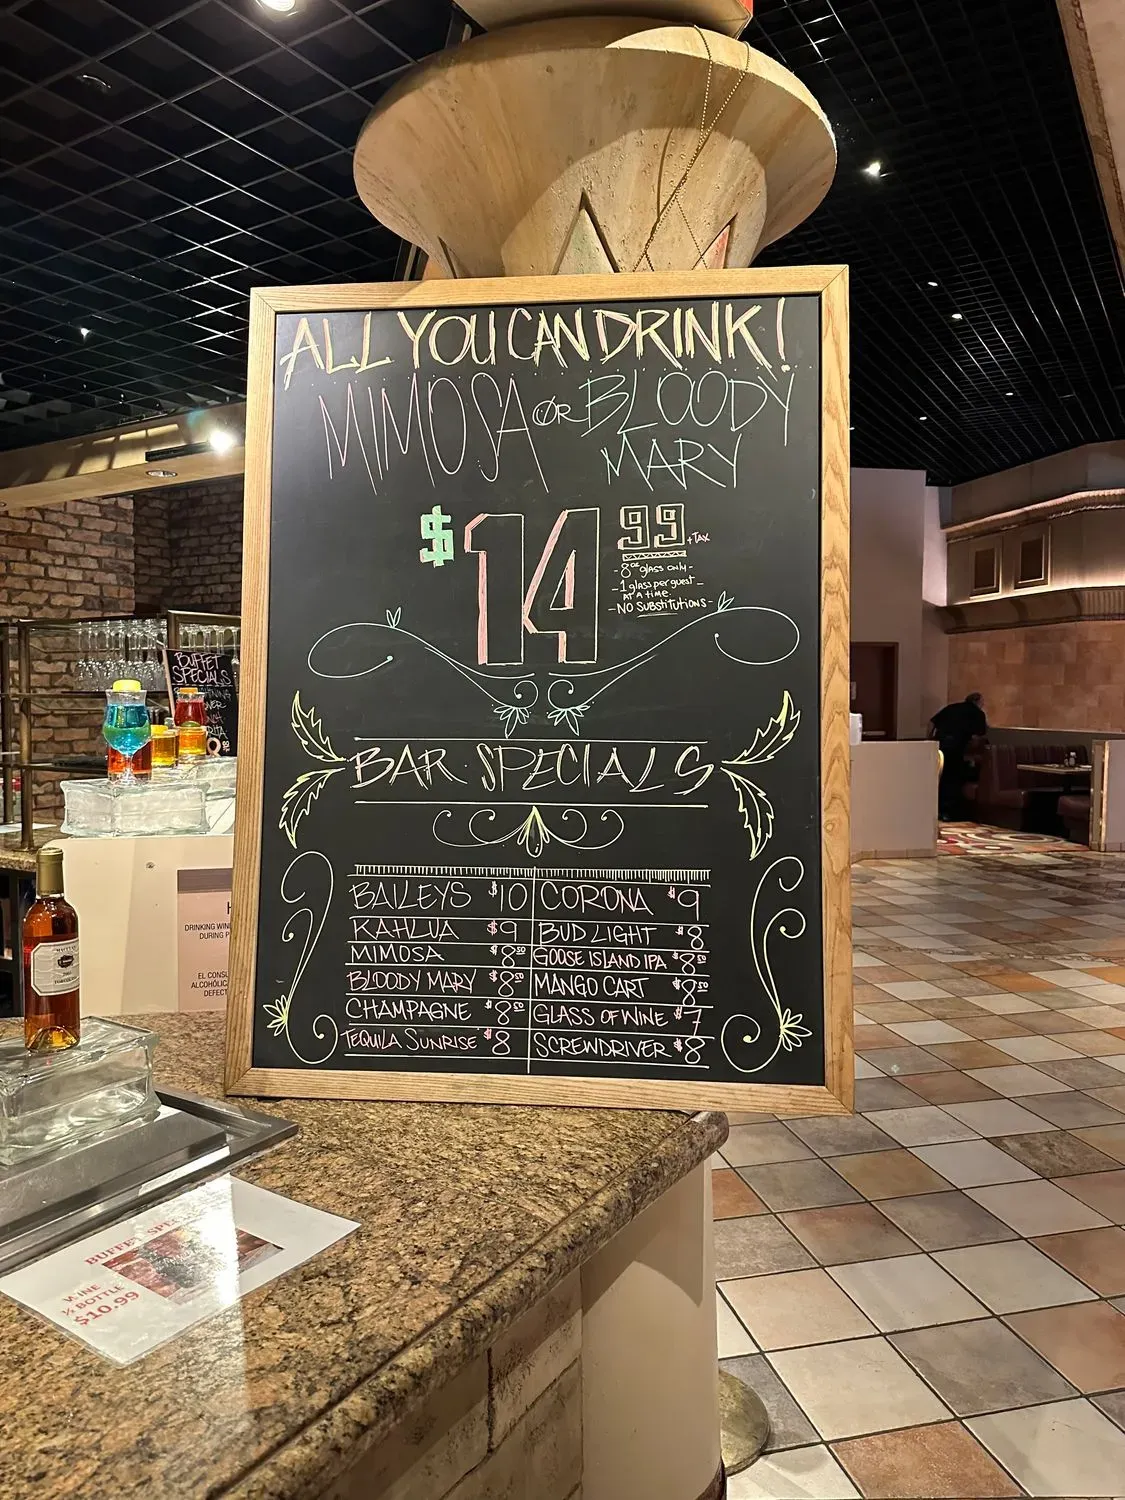 ALL YOU CAN DRINK!
MIMOSA OR BLOODY
MARY
$14 99 +TAX
- 8oz glass only -
- 1 glass per guest -
AT A time.
- NO SUBSTITUTIONS -
BAR SPECIALS
BAILEYS $10 CORONA $9
KAHLUA $9 BUD LIGHT $8
MIMOSA $8 50 GOOSE ISLAND IPA $8 50
BLOODY MARY $8 50 MANGO CART $8 50
CHAMPAGNE $8 50 GLASS OF WINE $7
TEQUILA SUNRISE $8 SCREWDRIVER $8
BUFFET
SPECIALS
DRINKING WIN
DURING P
EL CONSU
ALCOHÓLIC
DEFECT
BUFFET SPE
WINE
½ BOTTLE
$10.99